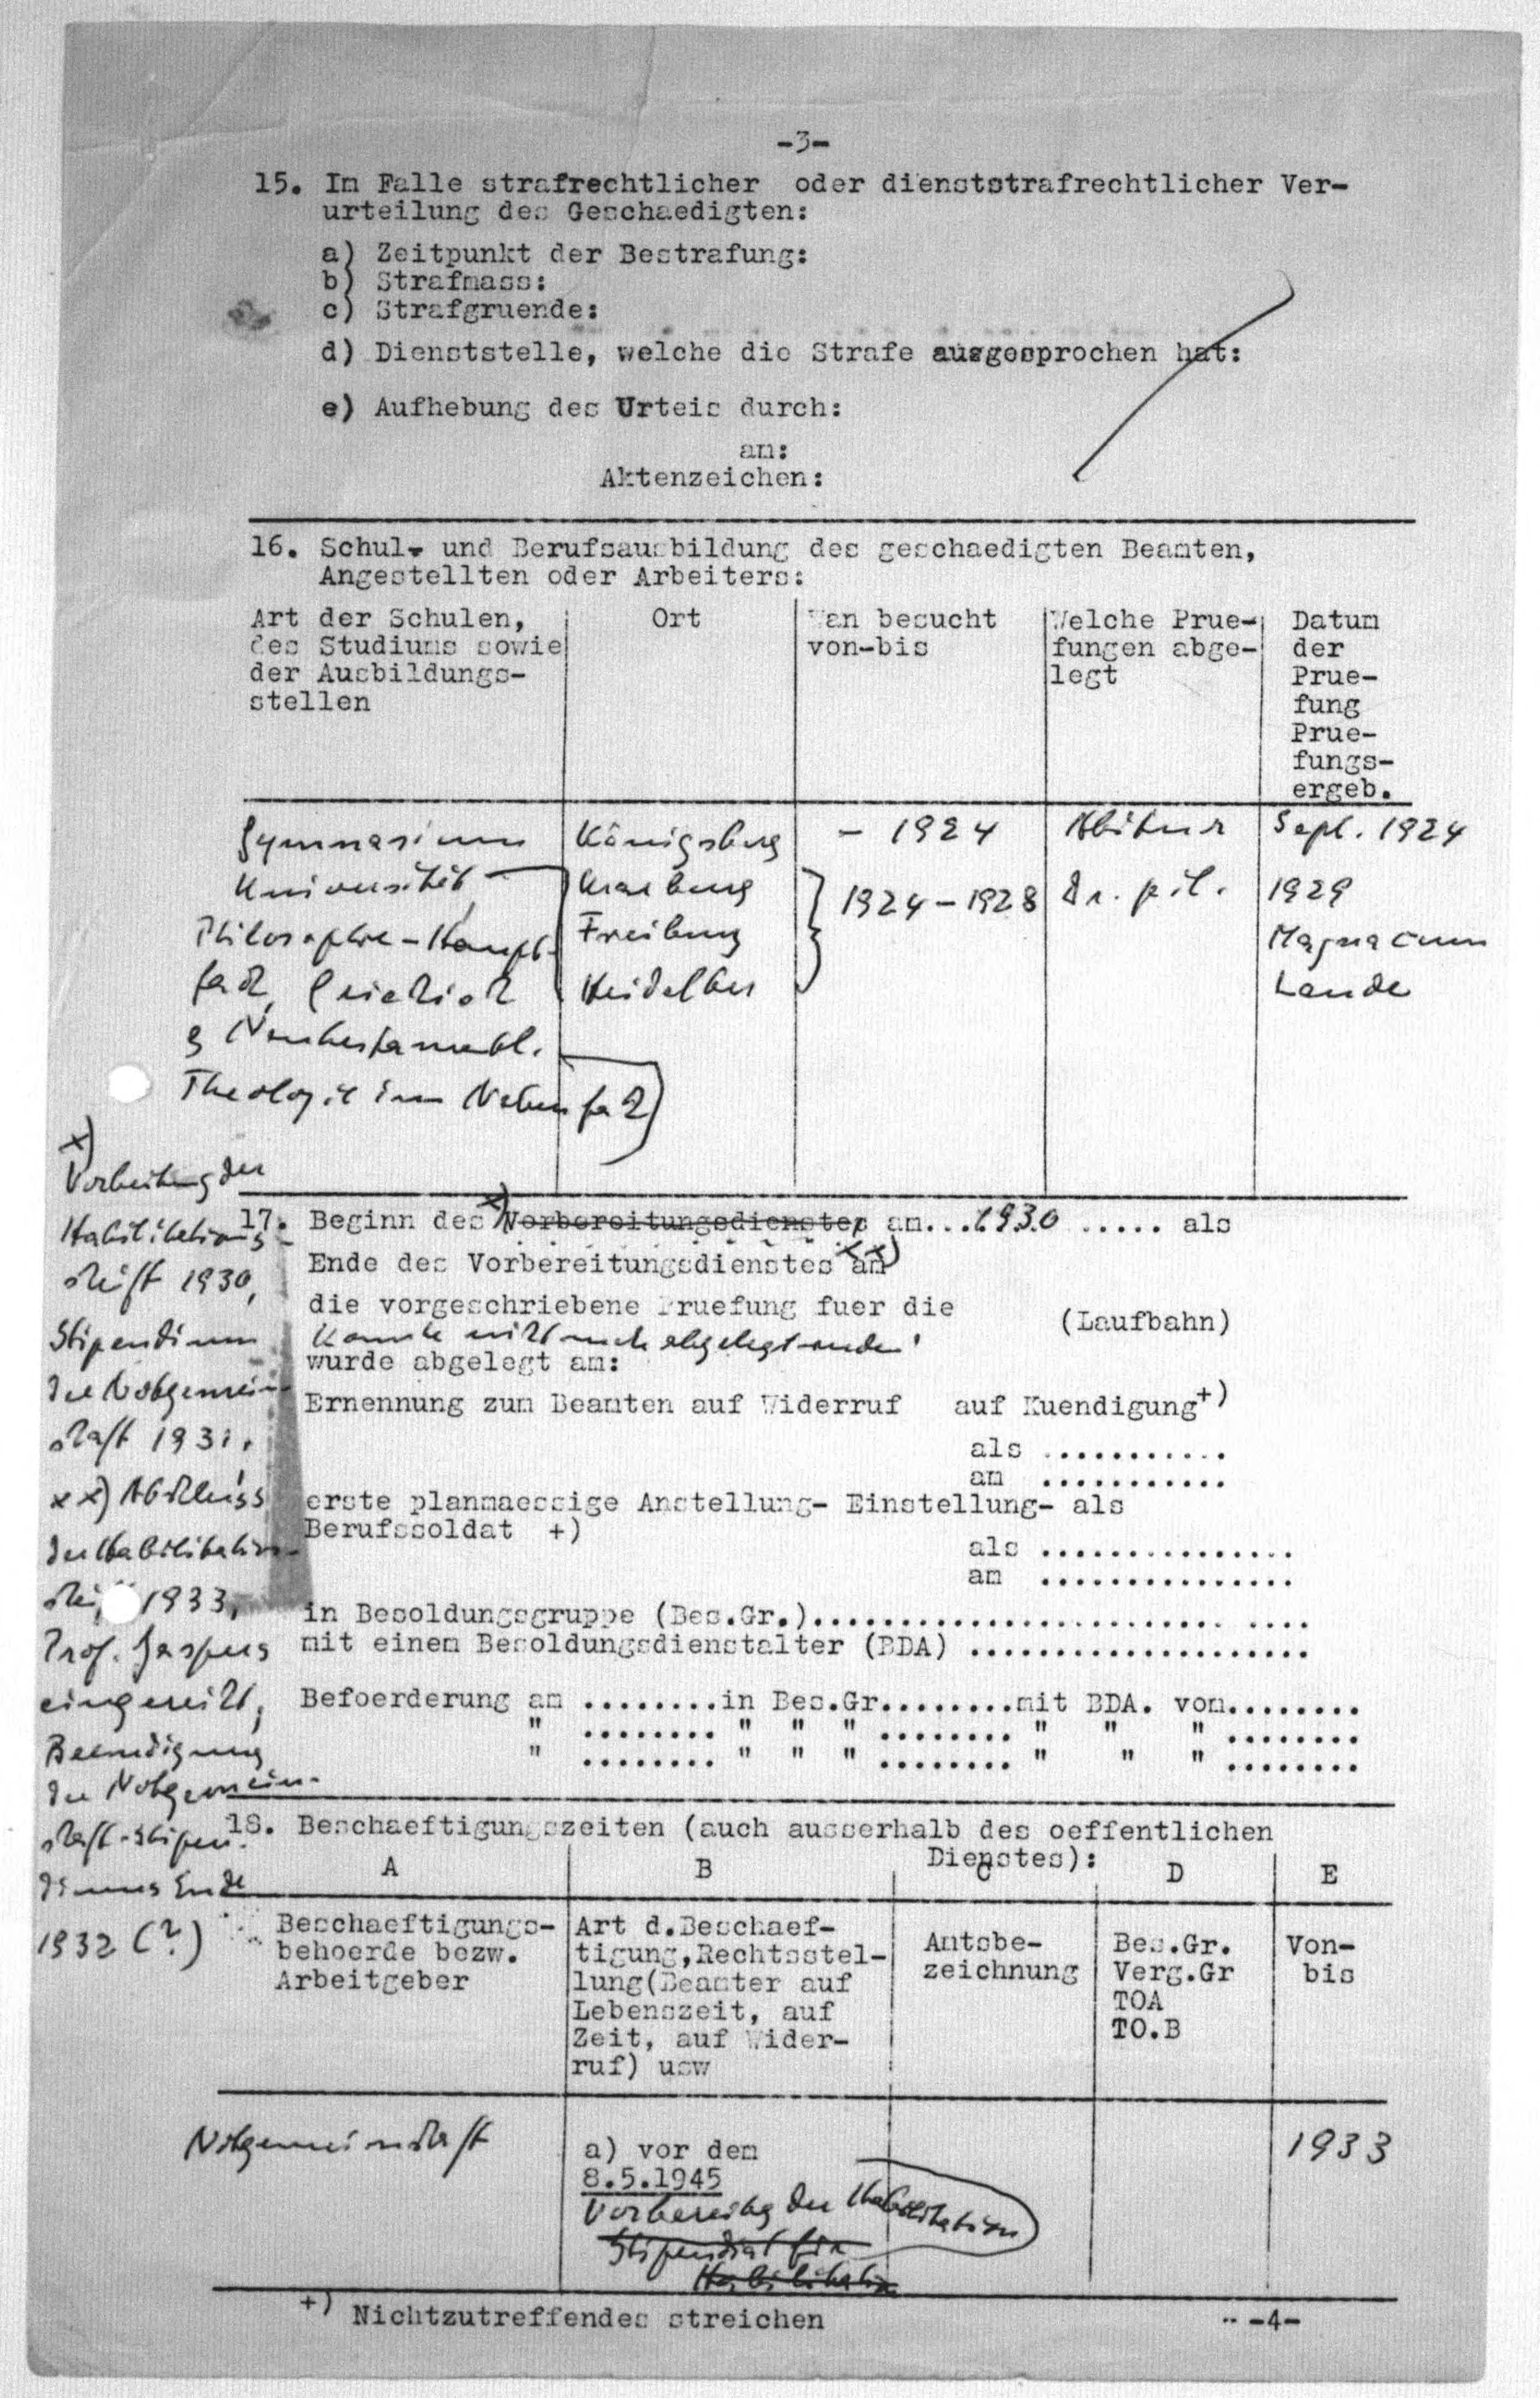 -3-
15. Im Falle strafrechtlicher oder dienststrafrechtlicher Ver-
urteilung des Geschaedigten:
a) Zeitpunkt der Bestrafung:
b) Strafmass:
c) Strafgruende:
d) Dienststelle, welche die Strafe ausgesprochen hat:
e) Aufhebung des Urteis durch:
am:
Aktenzeichen:
16. Schul- und Berufsausbildung des geschaedigten Beamten,
Angestellten oder Arbeiters:
Art der Schulen,
des Studiums sowie
der Ausbildungs-
stellen
Ort
Wan besucht
von-bis
Welche Prue-
fungen abge-
legt
Datum
der
Prue-
fung
Prue-
fungs-
ergeb.
Gymnasium Königsberg - 1924 Abitur Sept. 1924
Universität, Marburg 1924-1928 Dr. phil. 1929
Philosophie-Haupt- Freiburg Magna cum
fach, Griechisch Heidelberg Laude
& Neutestamentl.
Theologie im Nebenfach
x)
Vorbereitung der
Habilitations-
schrift 1930,
Stipendium
der Notgemein-
schaft 1931.
xx) Abschluss
der Habilitations-
1933,
Prof. Jaspers
eingereicht,
Beendigung
der Notgemein-
schaft-Stipen-
diums Ende
1932 (?)
17. Beginn des x) Vorbereitungsdienstes am...1930 ..... als
Ende des Vorbereitungsdienstes am xx)
die vorgeschriebene Pruefung fuer die (Laufbahn)
konnte nicht mehr abgelegt werden!
wurde abgelegt am:
Ernennung zum Beamten auf Widerruf auf Kuendigung+)
als ...........
am ...........
erste planmaessige Anstellung- Einstellung- als
Berufssoldat +)
als ...............
am ...............
in Besoldungsgruppe (Bes.Gr.)..............................
mit einem Besoldungsdienstalter (BDA) ....................
Befoerderung am ........in Bes.Gr.........mit BDA. vom........
" ........ " " " ........ " " " ........
" ........ " " " ........ " " " ........
18. Beschaeftigungszeiten (auch ausserhalb des oeffentlichen
Dienstes):
A B C D E
Beschaeftigungs-
behoerde bezw.
Arbeitgeber
Art d.Beschaef-
tigung,Rechtsstel-
lung(Beamter auf
Lebenszeit, auf
Zeit, auf Wider-
ruf) usw
Amtsbe-
zeichnung
Bes.Gr.
Verg.Gr
TOA
TO.B
Von-
bis
Notgemeinschaft
a) vor dem
8.5.1945
Vorbereitg der Habilitation
Stipendiat für
Habilitation
1933
+) Nichtzutreffendes streichen
-4-